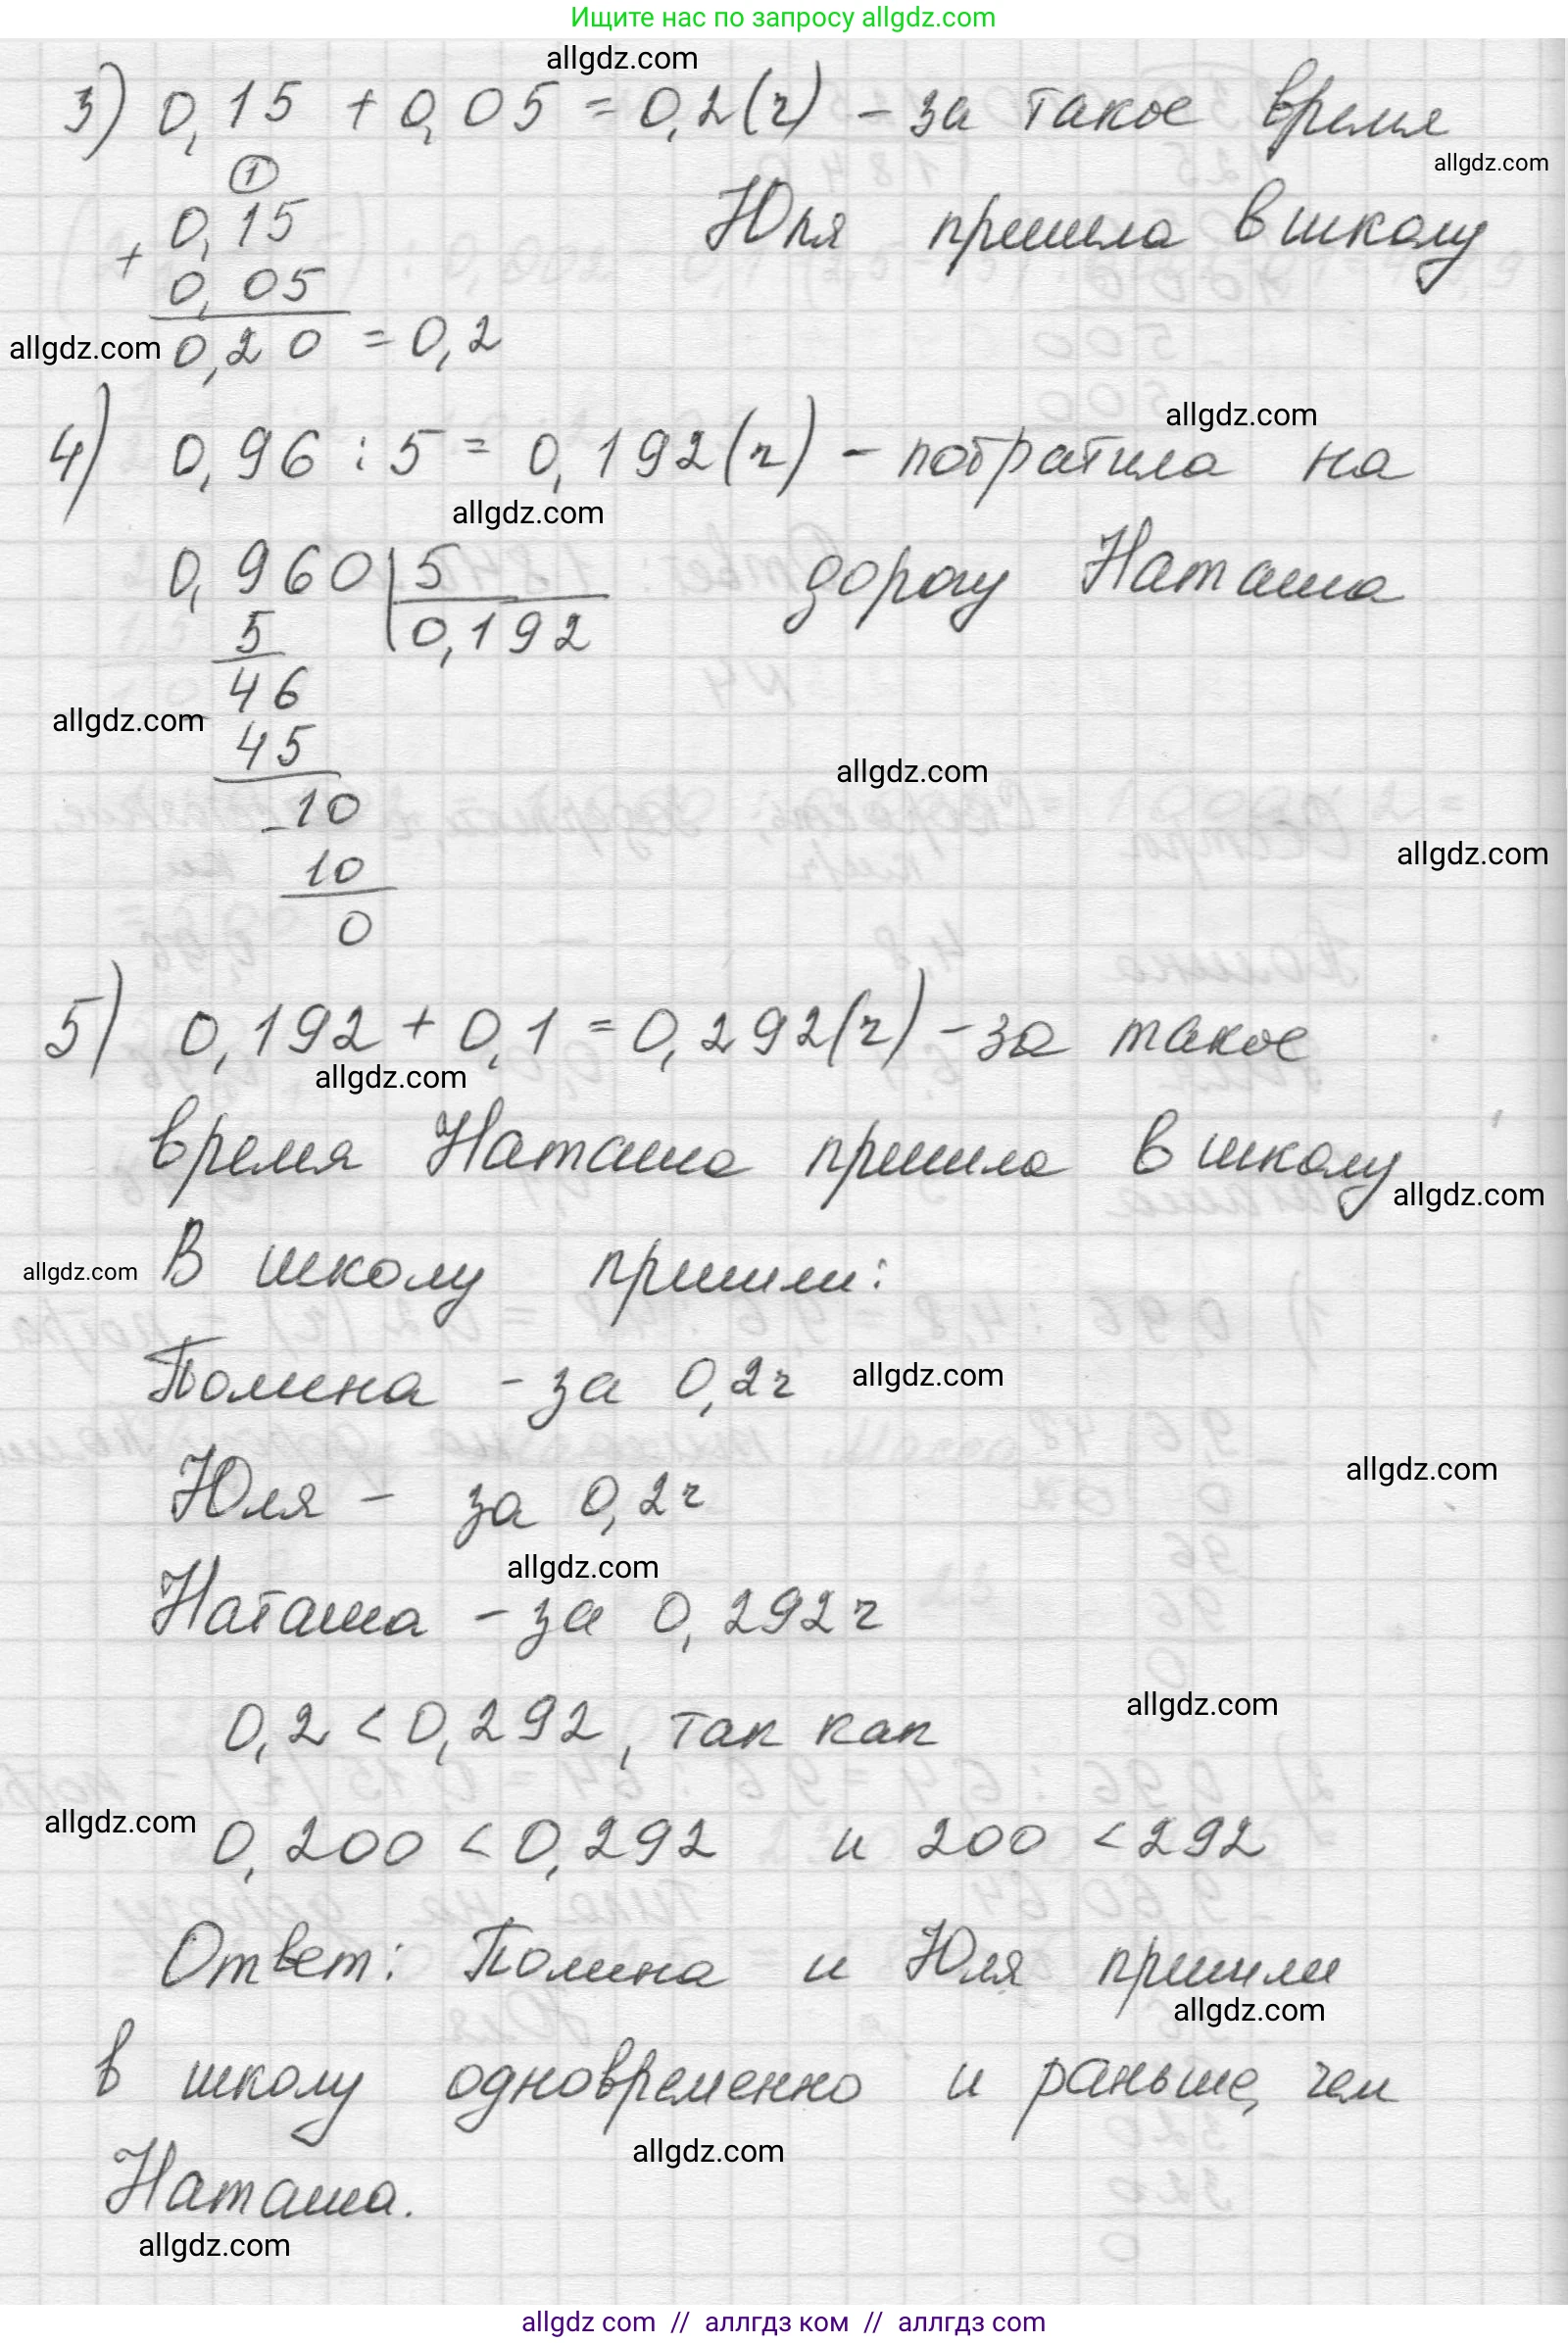 Ищите нас по запросу allgdz.com
allgdz.com
3) 0,15 + 0,05 = 0,2 (ч) - за такое время
allgdz.com
Юля пришла в школу
1
0,15
+
0,05
allgdz.com 0,20 = 0,2
allgdz.com
4) 0,96 : 5 = 0,192 (ч) - потратила на
allgdz.com
дорогу Наташа
0,960 | 5
5 0,192
46
allgdz.com
45
allgdz.com
-10
allgdz.com
10
0
5) 0,192 + 0,1 = 0,292 (ч) - за такое
allgdz.com
время Наташа пришла в школу
allgdz.com
allgdz.com В школу пришли:
Полина - за 0,2 ч allgdz.com
allgdz.com
Юля - за 0,2 ч
allgdz.com
Наташа - за 0,292 ч
allgdz.com
0,2 < 0,292, так как
allgdz.com
0,200 < 0,292 и 200 < 292
Ответ: Полина и Юля пришли
allgdz.com
в школу одновременно и раньше, чем
allgdz.com
Наташа.
allgdz.com
allgdz com // аллгдз ком // аллгдз com